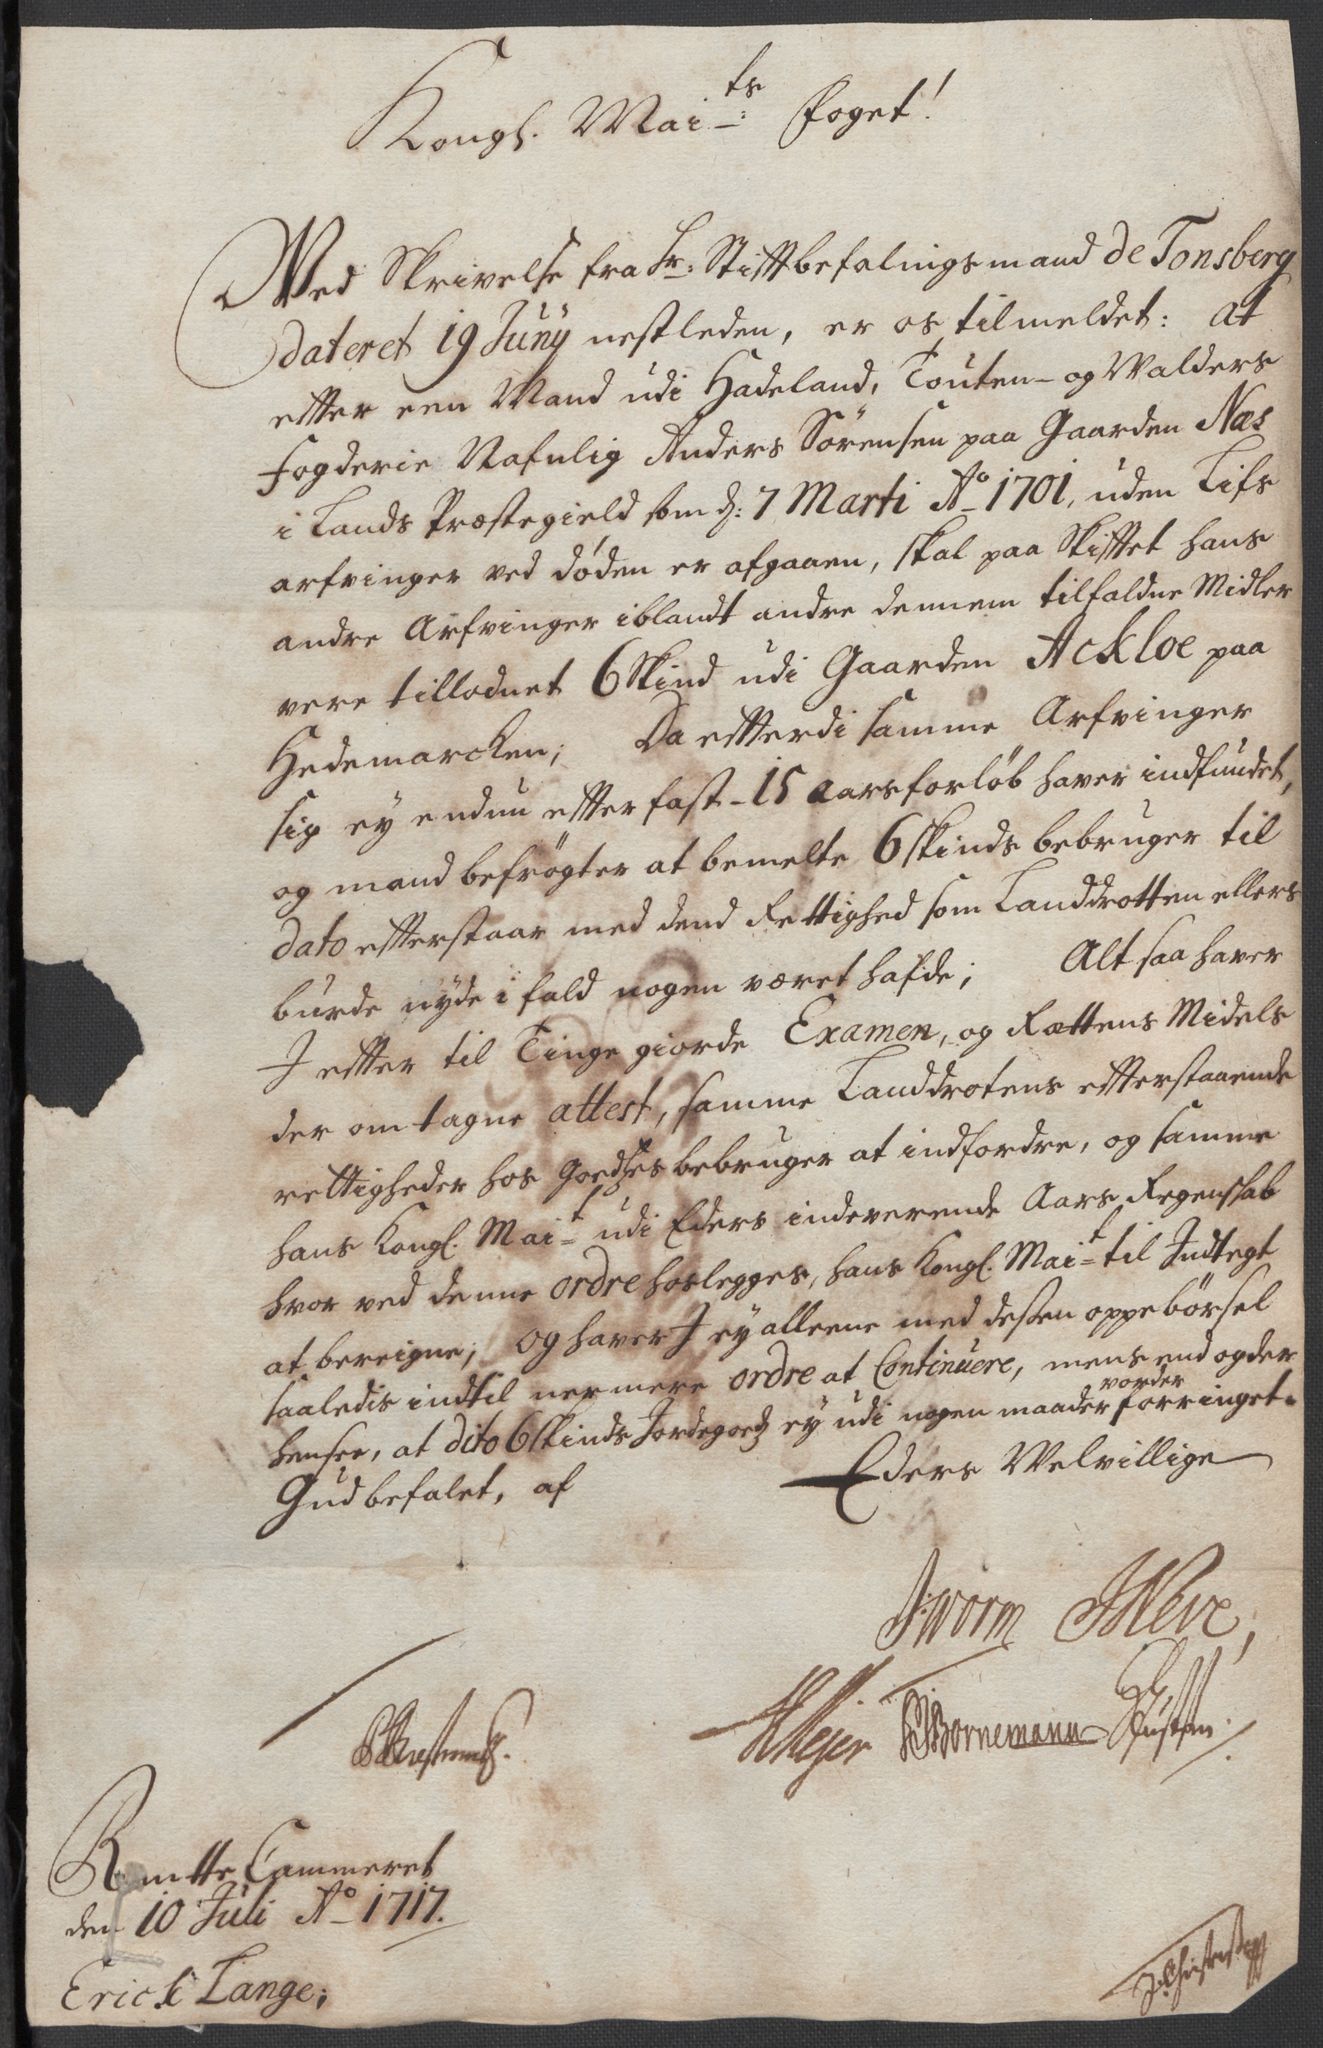 Kongl. Mai:ts Foget!
Ved Skrivelse fra Hr: Stiftbefalingsmand de Tonsberg
dateret 19 Junÿ nestleden, er os tilmeldet: at
effter een Mand udi Hadeland, Touten- og Walders
Fogderie Nafnlig Anders Sörensen paa Gaarden Næs
i Lands Præstegield som d: 7 Marti Ao 1701, uden Lifs
arfvinger ved døden er afgaaen, skal paa Skifftet hans
andre Arfvinger iblandt andre dennem tilfaldne Midler
vere tillodnet 6 Skind udi Gaarden Ackloe paa
Hedemarcken; Da effterdi samme Arfvinger
sig eÿ endnu effter fast- 15 aars forløb haver indfundet,
og mand befrögter at bemelte 6 skinds bebruger til
dato effterstaar med dend Rettighed som Landdrotten ellers
burde nÿde i fald nogen været hafde; Alt saa haver
I effter til Tinge giorde Examen, og Rættens Midels
der om tagne attest, samme Landdrotens effterstaaende
rettigheder hos Goedses bebruger at indfordre, og samme
hans Kongl. Mait udi Eders indeverende Aars Regenskab
hvor ved denne ordre hoslegges, hans Kongl. Mait til Indtegt
at bereigne; og haver I eÿ alleene med deßen oppebörsel
saaledis indtil nermere ordre at Continuere, mens end og der
vorder
hensee, at dito 6 skinds Jordegoedz eÿ udi nogen maader forringet.
Gud befalet, af Eders Velvillige
J: Worm JNeve,
HMejer Bornemann
Rentte Cammeret
den 10 Juli Ao 1717.
Erich Lange;